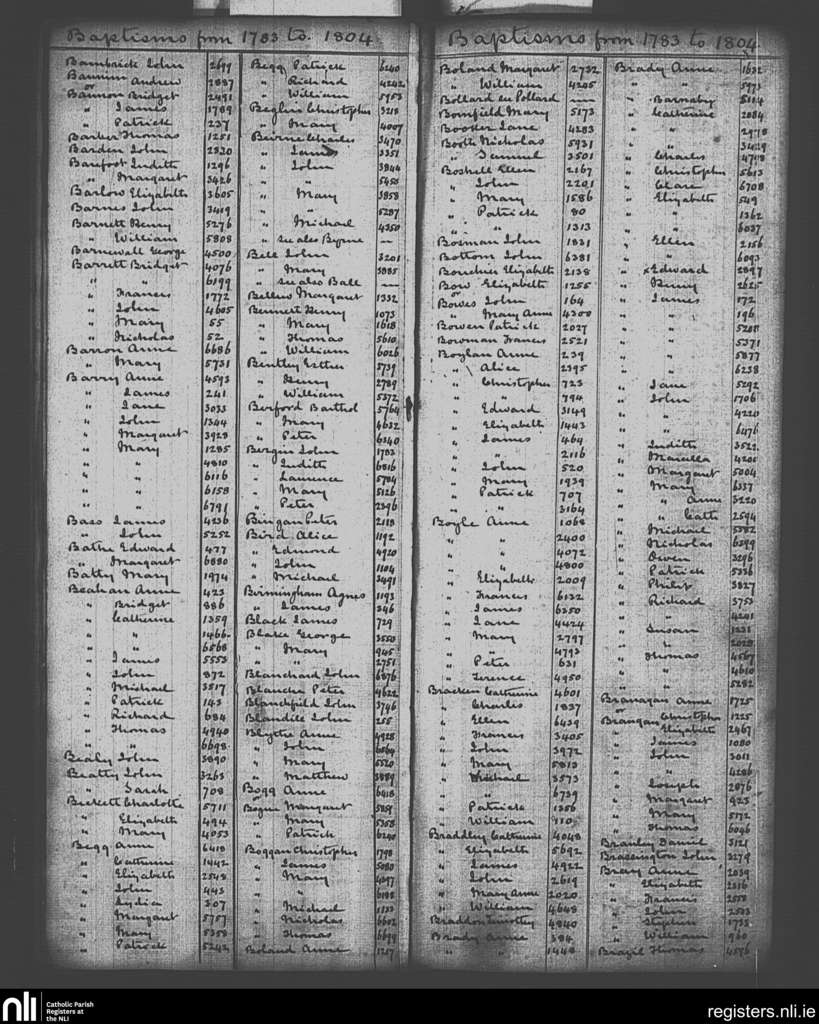 Baptisms from 1783 to 1804.
Bambrick John 2699
Bannim Andrew 2887
or
Bannon Bridget 2491
" James 1789
" Patrick 237
Barber Thomas 1251
Barden John 2820
Barefoot Judith 1296
" Margaret 3426
Barlow Elizabeth 3605
Barnes John 3419
Barnett Henry 5276
" William 5808
Barnewall George 4500
Barrett Bridget 4076
" " 6199
" Francis 1772
" John 4605
" Mary 55
" Nicholas 52
Barron Anne 6686
" Mary 5731
Barry Anne 4593
" James 241
" Jane 3033
" John 1344
" Margaret 3928
" Mary 1285
" " 4810
" " 6116
" " 6158
" " 6791
Bass James 4236
" John 5252
Bathe Edward 477
" Margaret 6880
Batty Mary 1974
Beahan Anne 423
" Bridget 886
" Catherine 1359
" " 1466
" " 6568
" James 5553
" John 872
" Michael 3517
" Patrick 143
" Richard 684
" Thomas 4940
" " 6698
Bealy John 3890
Beatty John 3263
" Sarah 708
Beckett Charlotte 5711
" Elizabeth 494
" Mary 4053
Begg Anne 6418
" Catherine 1442
" Elizabeth 2548
" John 443
" Lydia 307
" Margaret 5757
" Mary 5358
" Patrick 5242
Begg Patrick 6240
" Richard 4242
" William 5953
Beglin Christopher 3218
" Mary 4007
Beirne Charles 3470
" James 3351
" John 3844
" " 5458
" Mary 3858
" " 5287
" Michael 4350
" see also Byrne —
Bell John 3201
" Mary 3885
" see also Ball —
Bellew Margaret 1332
Bennett Henry 1073
" Mary 1618
" Thomas 5610
" William 6026
Bentley Esther 5739
" Henry 2789
" William 5372
Berford Barthol 5764
" Mary 4632
" Peter 6340
Bergin John 1782
" Judith 6816
" Laurence 5784
" Mary 5126
" Peter 2396
Bingan Peter 2118
Bird Alice 1192
" Edmond 4920
" John 1104
" Michael 3491
Birmingham Agnes 1193
" James 346
Black James 729
Blake George 3550
" Mary 945
" " 2751
Blanchard John 6876
Blanche Peter 4622
Blanchfield John 3746
Blandile John 255
Blythe Anne 4928
" John 6564
" Mary 5520
" Matthew 3889
Bogg Anne 6418
or
Bogue Margaret 5859
" Mary 5358
" Patrick 6240
Boggan Christopher 1798
" James 5080
" Mary 4397
" " 6188
" Michael 1133
" Nicholas 6602
" Thomas 6699
Boland Anne 1257
Baptisms from 1783 to 1804
Boland Margaret 2732
" William 4205
Bollard see Pollard —
Bomfield Mary 5173
Booker Jane 4283
Booth Nicholas 5931
" Samuel 3501
Boshell Ellen 2167
" John 2201
" Mary 1586
" Patrick 80
" " 1313
Bosman John 1831
Bottom John 6381
Bouchier Elizabeth 2138
Bow Elizabeth 1255
or
Bowes John 164
" Mary Anne 4300
Bowen Patrick 2027
Bowman Francis 2521
Boylan Anne 239
" Alice 2395
" Christopher 723
" " 794
" Edward 3149
" Elizabeth 1443
" James 464
" " 2116
" John 520
" Mary 1939
" Patrick 707
" " 3164
Boyle Anne 1068
" " 2400
" " 4072
" " 4800
" Elizabeth 2009
" Francis 6132
" James 6250
" Jane 4424
" Mary 2797
" " 4793
" Peter 631
" Terence 4950
Bracken Catherine 4601
" Charles 1837
" Ellen 6439
" Francis 3405
" John 3972
" Mary 5813
" Michael 3573
" " 6739
" Patrick 1356
" William 910
Braddley Catherine 4048
" Elizabeth 5692
" James 4922
" John 2619
" Mary Anne 2020
" William 4648
Braddon Timothy 4840
Brady Anne 384
" " 1448
Brady Anne 1632
" " 5973
" Barnaby 5114
" Catherine 2084
" " 2978
" " 3429
" Charles 4748
" Christopher 5613
" Clare 6708
" Elizabeth 549
" " 1362
" " 6037
" Ellen 2156
" " 6093
" xEdward 2897
" Henry 2625
" James 172
" " 196
" " 5208
" " 5371
" " 5877
" " 6238
" Jane 5292
" John 1706
" " 4220
" " 6476
" Judith 3522
" Marcella 4205
" Margaret 5004
" Mary 6337
" " Anne 3220
" " Cath 2594
" Michael 5382
" Nicholas 6299
" Owen 3296
" Patrick 5336
" Philip 3827
" Richard 3753
" " 4241
" Susan 1231
" " 2028
" Thomas 4567
" " 4610
" " 5282
Branagan Anne 1725
or
Brangan Christopher 1225
" Elizabeth 2467
" James 1080
" John 3011
" " 4286
" Joseph 2876
" Margaret 923
" Mary 5172
" Thomas 6046
Branley Daniel 3121
Brassington John 3279
Bray Anne 2039
" Elizabeth 2316
" Francis 2558
" John 2583
" Stephen 1735
" William 960
Brazil Thomas 4586
nli
Catholic Parish
Registers at
the NLI
registers.nli.ie